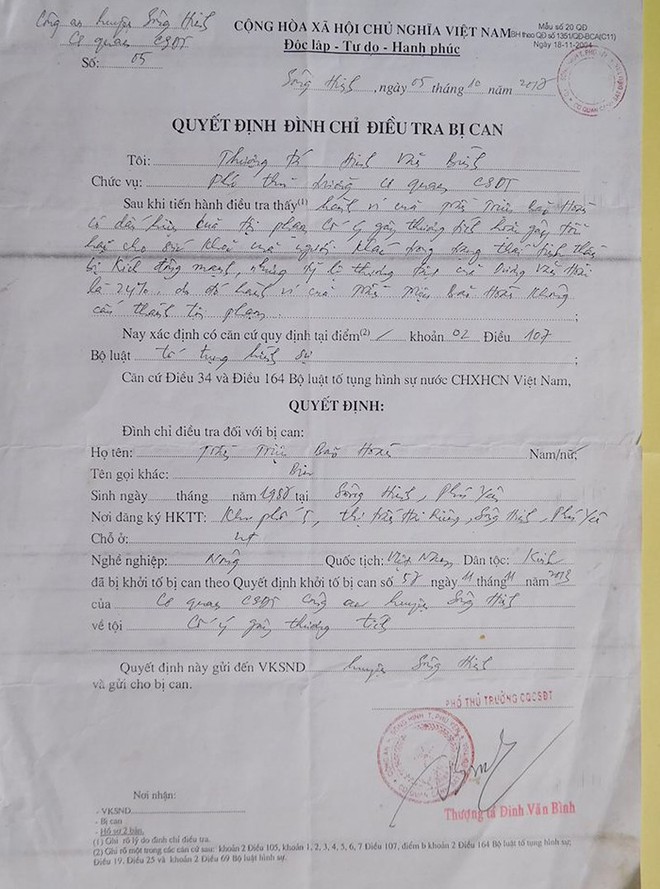 Công an huyện Sông Hinh
Cơ quan CSĐT
Số: 05
CỘNG HÒA XÃ HỘI CHỦ NGHĨA VIỆT NAM
Độc lập - Tự do - Hạnh phúc
Mẫu số 20 QĐ
BH theo QĐ số 1351/QĐ-BCA(C11)
Ngày 18-11-2004
Sông Hinh, ngày 05 tháng 10 năm
QUYẾT ĐỊNH ĐÌNH CHỈ ĐIỀU TRA BỊ CAN
Tôi: Thượng tá Đinh Văn Bình
Chức vụ: Phó thủ trưởng cơ quan CSĐT
Sau khi tiến hành điều tra thấy(1) hành vi của Trần Triệu Bảo Hoài
có dấu hiệu của tội phạm Cố ý gây thương tích hoặc gây tổn
hại cho sức khỏe của người khác trong trạng thái tinh thần
bị kích động mạnh, nhưng tỷ lệ thương tích của Dương Văn
là 24%, do đó hành vi của Trần Triệu Bảo Hoài không
cấu thành tội phạm. ;
Nay xác định có căn cứ quy định tại điểm(2) / khoản 02 Điều 107
Bộ luật tố tụng hình sự ;
Căn cứ Điều 34 và Điều 164 Bộ luật tố tụng hình sự nước CHXHCN Việt Nam,
QUYẾT ĐỊNH:
Đình chỉ điều tra đối với bị can:
Họ tên: Trần Triệu Bảo Hoài Nam/nữ;
Tên gọi khác: ;
Sinh ngày tháng năm tại Sông Hinh, Phú Yên
Nơi đăng ký HKTT: Khu phố 5, thị trấn Hai Riêng, Sông Hinh, Phú Yên
Chỗ ở: nt ;
Nghề nghiệp: Nông Quốc tịch: Việt Nam Dân tộc: Kinh
đã bị khởi tố bị can theo Quyết định khởi tố bị can số ngày 11 tháng 11 năm 2013
của Cơ quan CSĐT Công an huyện Sông Hinh
về tội Cố ý gây thương tích
Quyết định này gửi đến VKSND huyện Sông Hinh
và gửi cho bị can.
PHÓ THỦ TRƯỞNG CQCSĐT
Thượng tá Đinh Văn Bình
Nơi nhận:
- VKSND
- Bị can
- Hồ sơ 2 bản.
(1) Ghi rõ lý do đình chỉ điều tra.
(2) Ghi rõ một trong các căn cứ sau: khoản 2 Điều 105, khoản 1, 2, 3, 4, 5, 6, 7 Điều 107, điểm b khoản 2 Điều 164 Bộ luật tố tụng hình sự;
Điều 19, Điều 25 và khoản 2 Điều 69 Bộ luật hình sự.